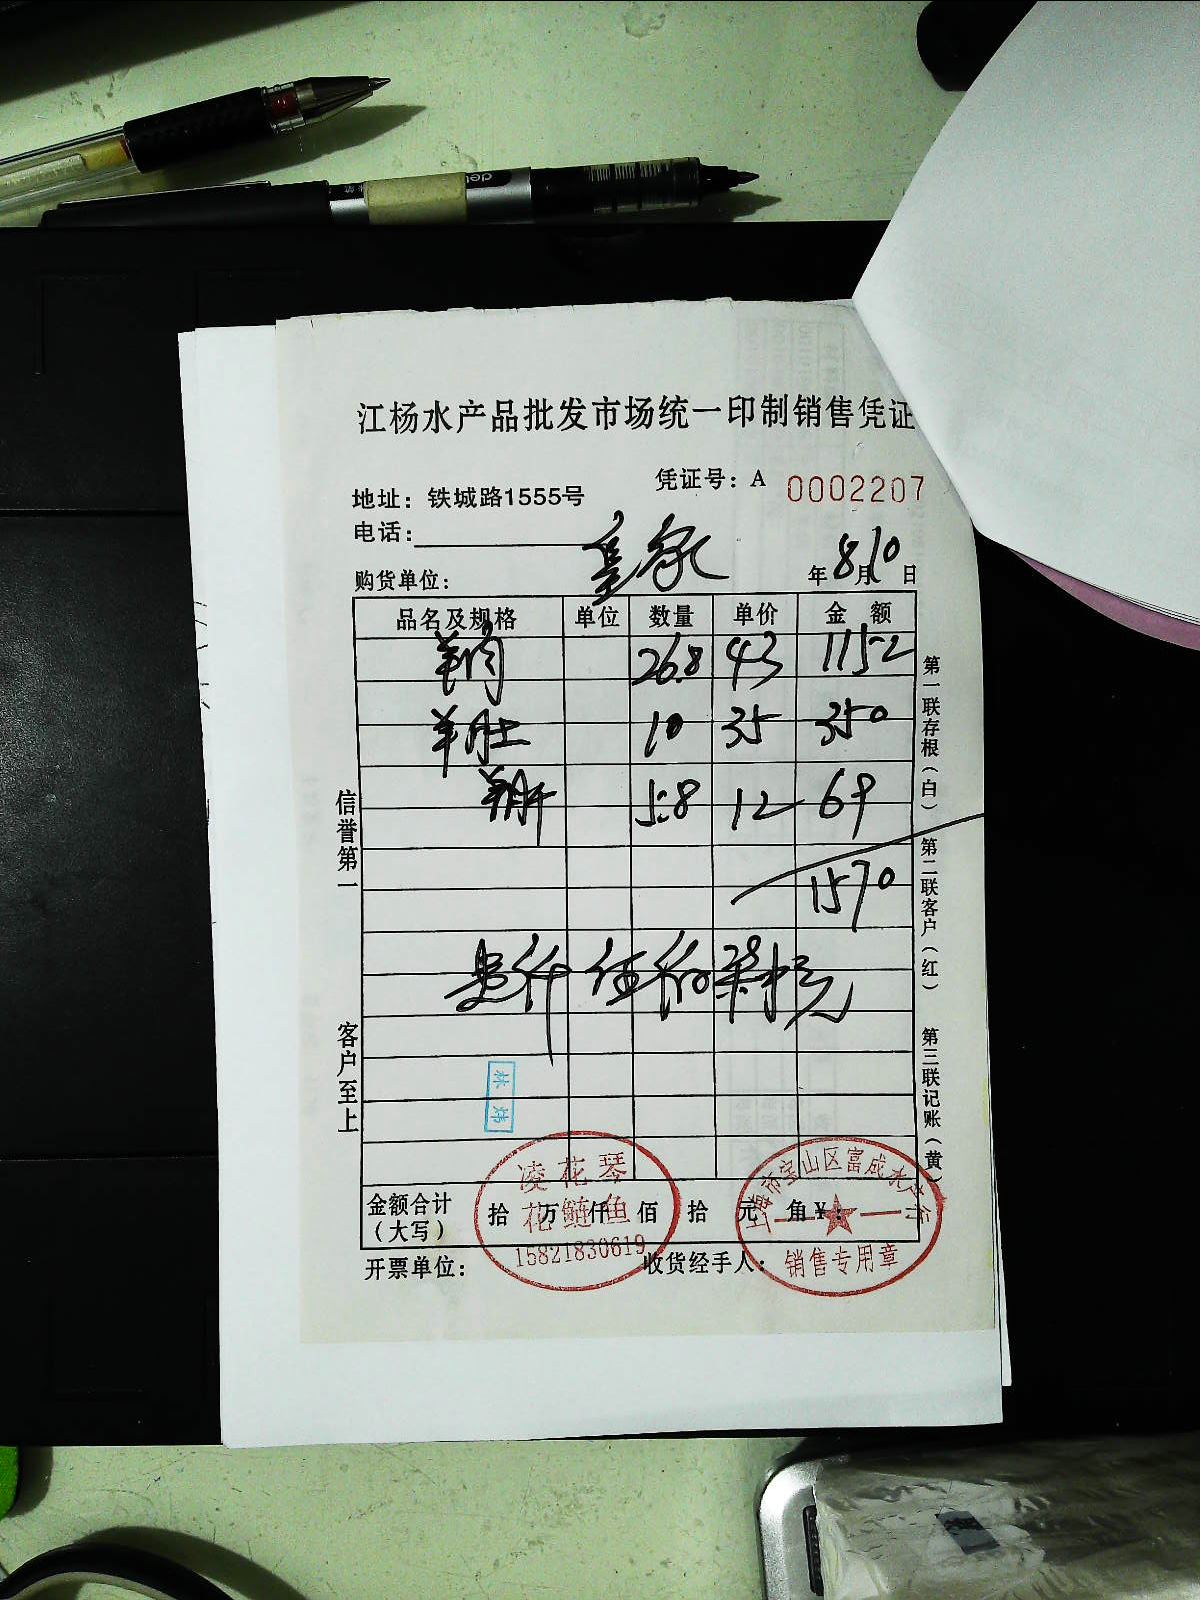 江杨水产品批发市场统一印制销售凭证
凭证号：A 0002207
地址：铁城路1555号
电话：
购货单位： 年 8 月 10 日
品名及规格 单位 数量 单价 金 额
羊肉 26.8 43 1152
羊肚 10 35 350
羊肝 5.8 12 69
1570
壹仟伍佰柒拾元
金额合计（大写） 拾 万 仟 佰 拾 元 角 ¥
开票单位： 收货经手人：
信誉第一
客户至上
第一联存根（白）
第二联客户（红）
第三联记账（黄）
凌花琴
花鲢鱼
15821830619
上海市宝山区富成水产行
销售专用章
deli